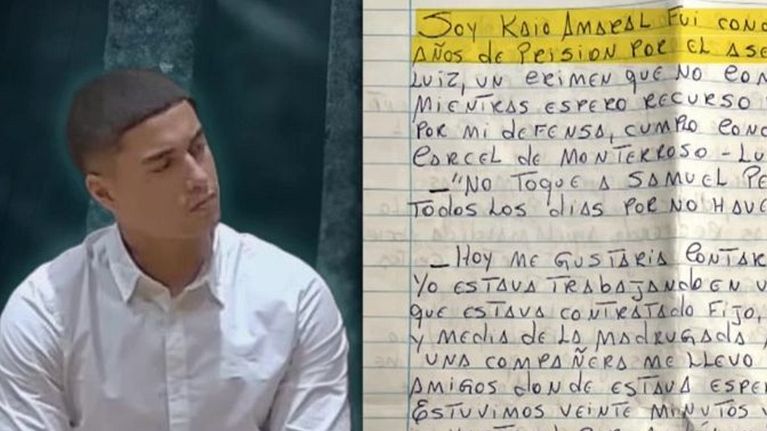 Soy Kaio Amaral fui cond
años de prision por el ase
Luiz, un crimen que no com
mientras espero recurso
por mi defensa, cumplo cond
carcel de Monterroso - Lu
-"No toque a Samuel pe
todos los dias por no have
- Hoy me gustaria contar
Yo estava trabajando en u
que estava contratado fijo,
y media de la madrugada
una compañera me llevo
amigos donde estava espe
Estuvimos veinte minutos